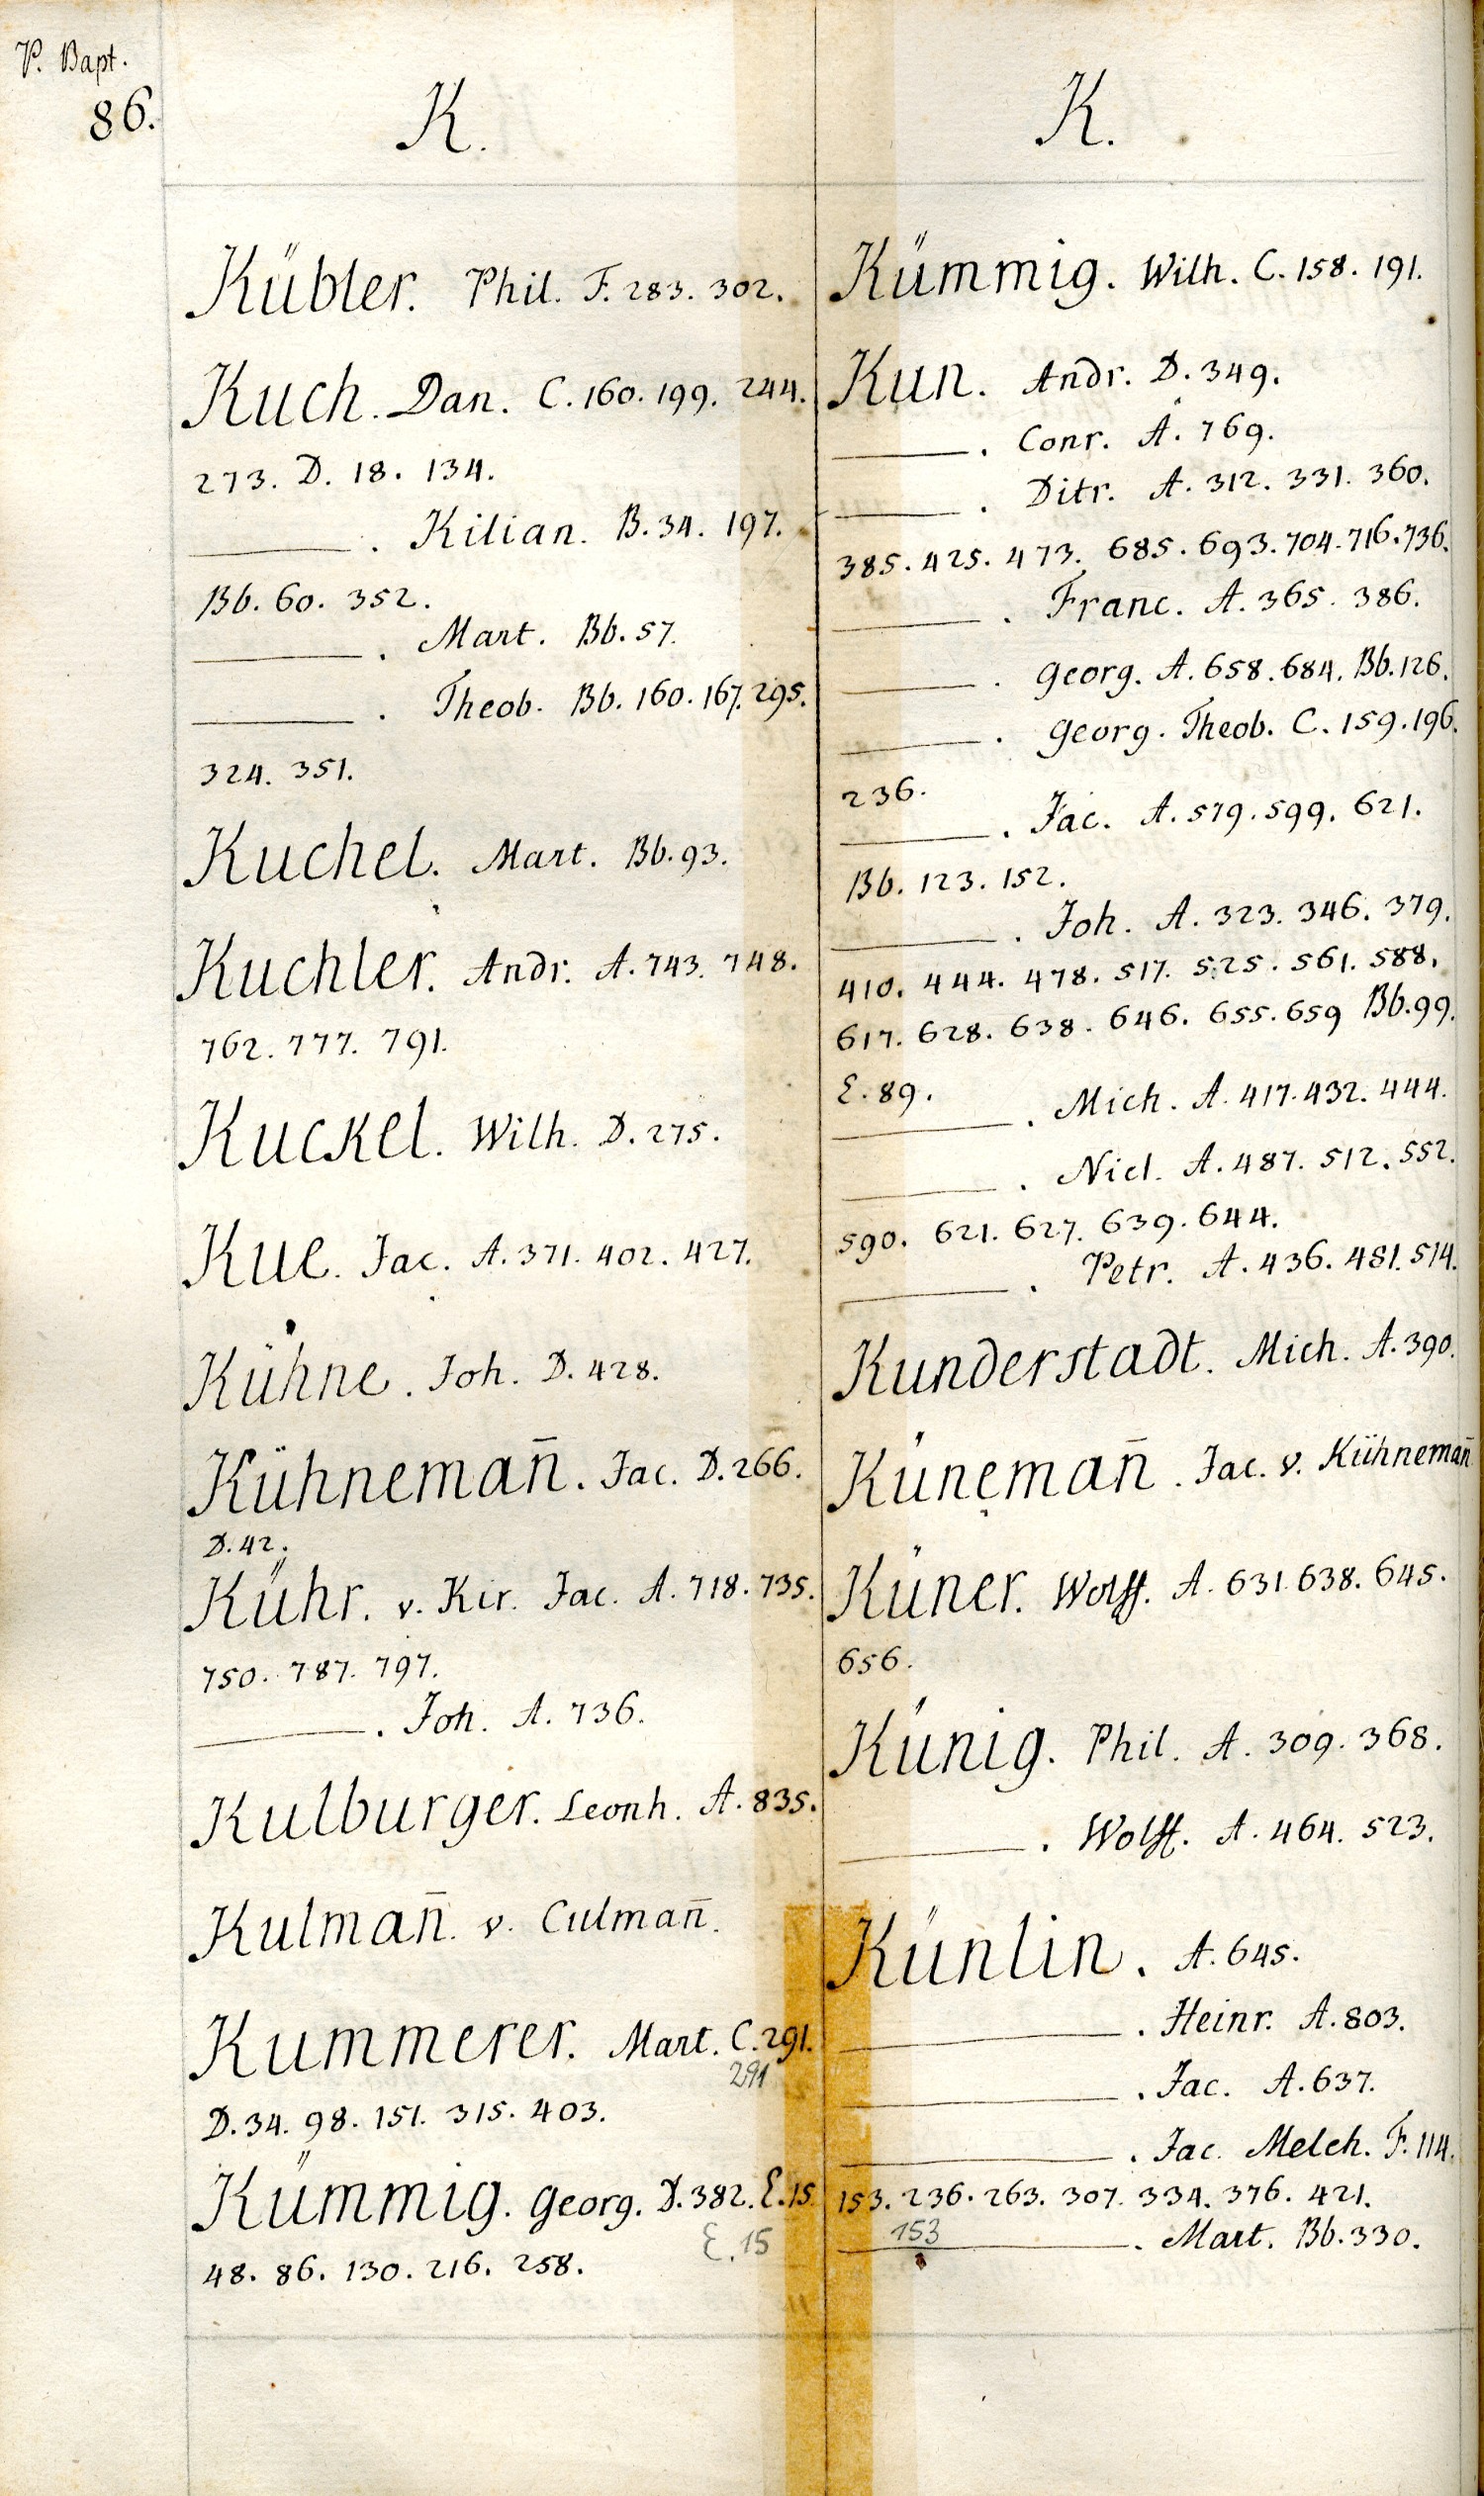 P. Bapt.
86.
K.
Kübler. Phil. F. 283. 302.
Kuch. Dan. C. 160. 199. 244.
273. D. 18. 134.
———. Kilian. B. 34. 197.
Bb. 60. 352.
———. Mart. Bb. 57.
———. Theob. Bb. 160. 167. 295.
324. 351.
Kuchel. Mart. Bb. 93.
Kuchler. Andr. A. 743. 748.
762. 777. 791.
Kuckel. Wilh. D. 275.
Kue. Jac. A. 371. 402. 427.
Kühne. Joh. D. 428.
Kühneman̅. Jac. D. 266.
D. 42.
Kühr. v. Kir. Jac. A. 718. 735.
750. 787. 797.
———. Joh. A. 736.
Kulburger. Leonh. A. 835.
Kulman̅. v. Culman̅.
Kummerer. Mart. C. 291.
291
D. 34. 98. 151. 315. 403.
Kümmig. Georg. D. 382. E. 15.
E. 15
48. 86. 130. 216. 258.
K.
Kümmig. Wilh. C. 158. 191.
Kun. Andr. D. 349.
———. Conr. A. 769.
———. Ditr. A. 312. 331. 360.
385. 425. 473. 685. 693. 704. 716. 736.
———. Franc. A. 365. 386.
———. Georg. A. 658. 684. Bb. 126.
———. Georg. Theob. C. 159. 196.
236.
———. Jac. A. 579. 599. 621.
Bb. 123. 152.
———. Joh. A. 323. 346. 379.
410. 444. 478. 517. 525. 561. 588.
617. 628. 638. 646. 655. 659 Bb. 99.
E. 89.
———. Mich. A. 417. 432. 444.
———. Nicl. A. 487. 512. 552.
590. 621. 627. 639. 644.
———. Petr. A. 436. 481. 514.
Kunderstadt. Mich. A. 390.
Küneman̅. Jac. v. Kühneman̅
Küner. Wolff. A. 631. 638. 645.
656.
Künig. Phil. A. 309. 368.
———. Wolff. A. 464. 523.
Künlin. A. 645.
———. Heinr. A. 803.
———. Jac. A. 637.
———. Jac. Melch. F. 114.
153. 236. 263. 307. 334. 376. 421.
153
———. Mart. Bb. 330.